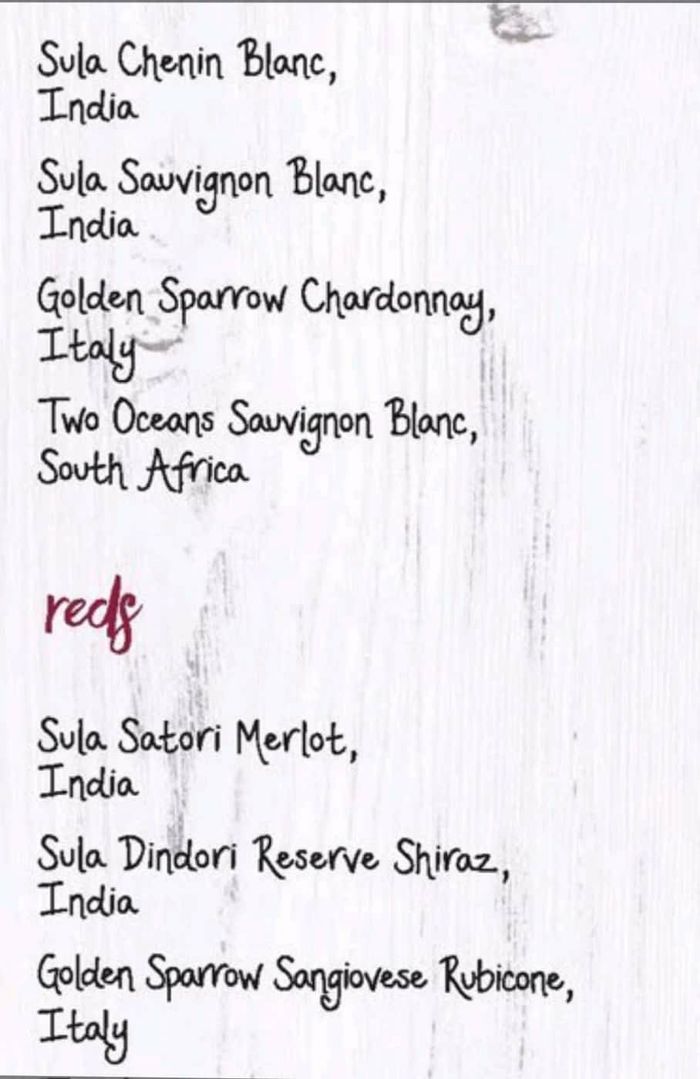 Sula Chenin Blanc,
India
Sula Sauvignon Blanc,
India
Golden Sparrow Chardonnay,
Italy
Two Oceans Sauvignon Blanc,
South Africa
reds
Sula Satori Merlot,
India
Sula Dindori Reserve Shiraz,
India
Golden Sparrow Sangiovese Rubicone,
Italy